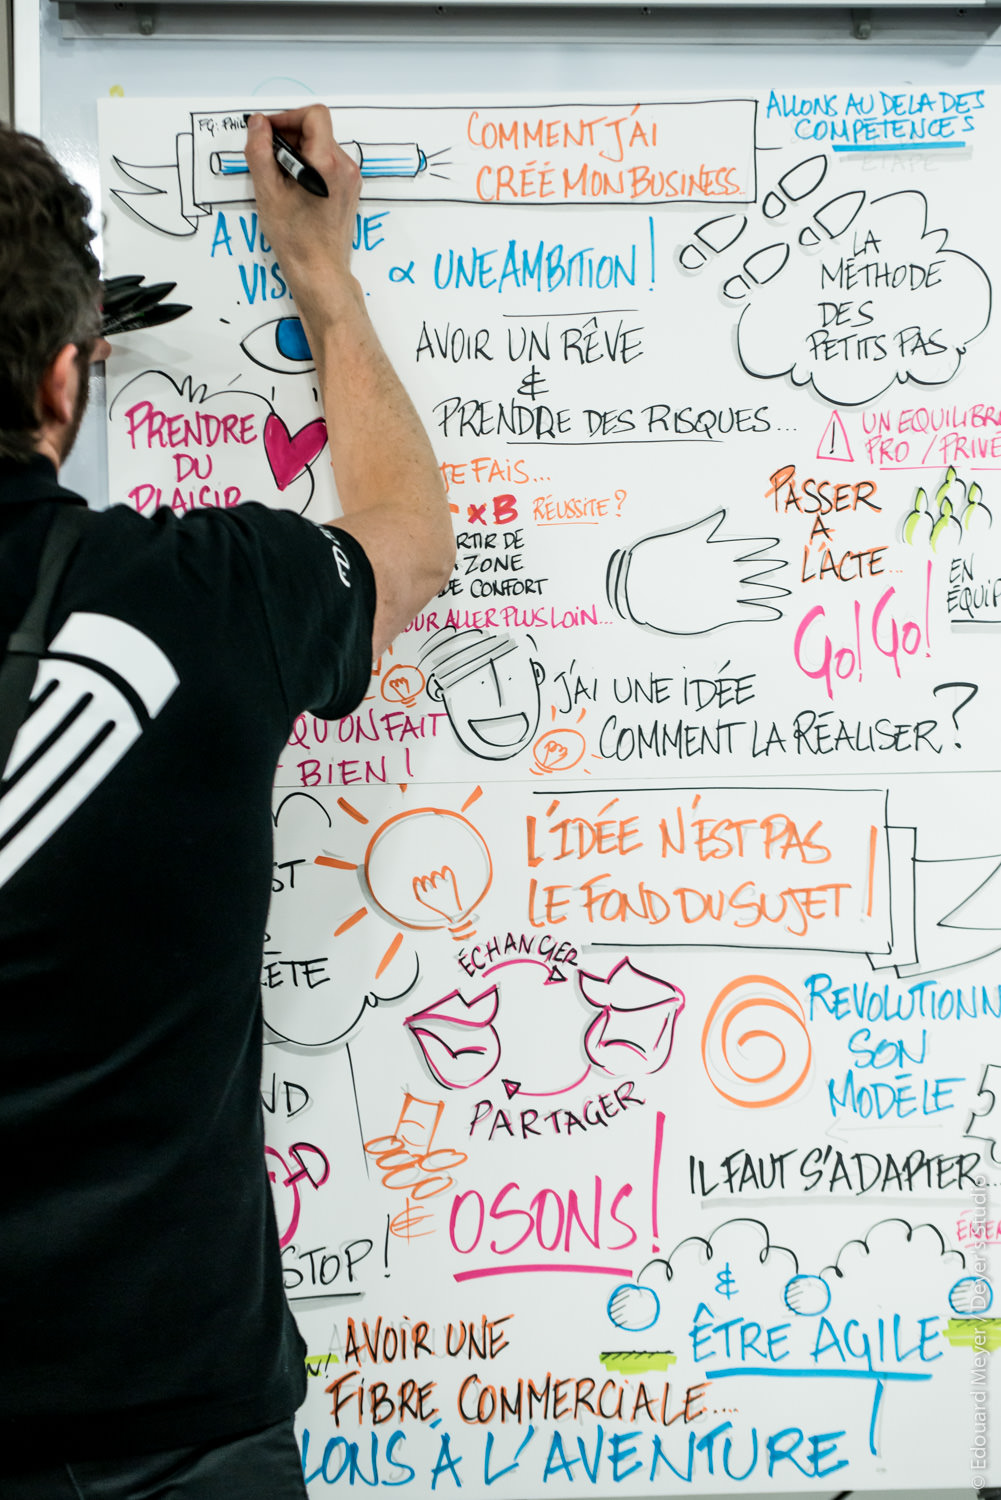 COMMENT J'AI
CRÉÉ MON BUSINESS..
ALLONS AU DELA DES
COMPÉTENCES
ÉTAPE
& UNE AMBITION !
LA
MÉTHODE
DES
PETITS PAS
AVOIR UN RÊVE
&
PRENDRE DES RISQUES...
PRENDRE
DU
PLAISIR
UN EQUILIBR
PRO / PRIVÉ
JE FAIS...
x B RÉUSSITE ?
RTIR DE
ZONE
DE CONFORT
OUR ALLER PLUS LOIN...
PASSER
À
L'ACTE...
EN
ÉQUIP
Go! Go!
J'AI UNE IDÉE
COMMENT LA RÉALISER ?
QU'ON FAIT
BIEN !
L'IDÉE N'EST PAS
LE FOND DU SUJET !
ST
ÈTE
ÉCHANGER
PARTAGER
REVOLUTIONN
SON
MODÈLE
ND
IL FAUT S'ADAPTER...
OSONS !
STOP !
&
ÊTRE AGILE
AVOIR UNE
FIBRE COMMERCIALE....
LONS À L'AVENTURE !
© Edouard Meyer / Deyer's studio